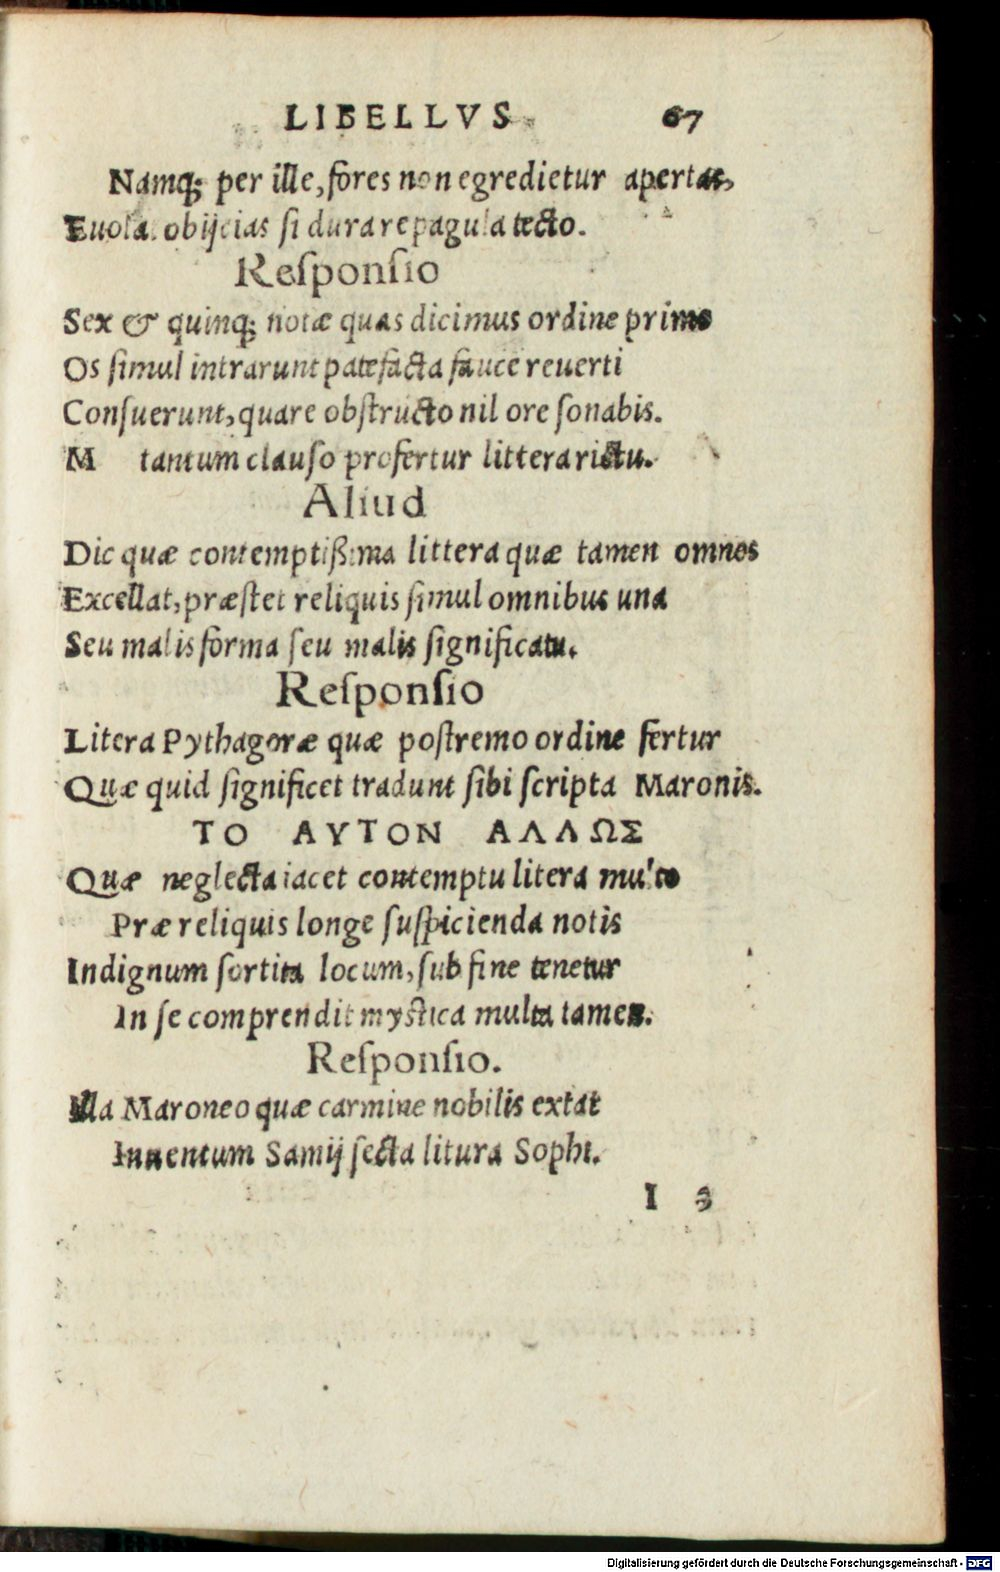 LIBELLVS 67
Namq; per ille, fores non egredietur apertas,
Euola. obijcias si dura repagula tecto.
Responsio
Sex & quinq; notæ quas dicimus ordine primo
Os simul intrarunt patefacta fauce reuerti
Consuerunt, quare obstructo nil ore sonabis.
M tantum clauso profertur littera rictu.
Aliud
Dic quæ contemptißima littera quæ tamen omnes
Excellat, præstet reliquis simul omnibus una
Seu malis forma seu malis significatu.
Responsio
Litera Pythagoræ quæ postremo ordine fertur
Quæ quid significet tradunt sibi scripta Maronis.
ΤΟ ΑΥΤΟΝ ΑΛΛΩΣ
Quæ neglecta iacet contemptu litera multo
Præ reliquis longe suspicienda notis
Indignum sortita locum, sub fine tenetur
In se comprendit mystica multa tamen.
Responsio.
Illa Maroneo quæ carmine nobilis extat
Inuentum Samij secta litura Sophi.
I 3
Digitalisierung gefördert durch die Deutsche Forschungsgemeinschaft - DFG